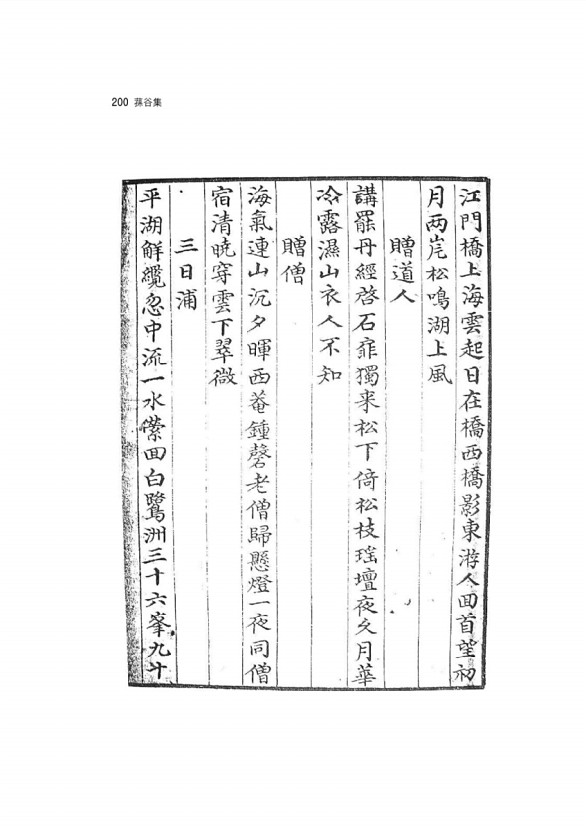 200 蓀谷集
江門橋上海雲起日在橋西橋影東游人回首望初
月两岸松鳴湖上風
贈道人
講罷丹經啓石扉獨来松下倚松枝瑤壇夜久月華
冷露濕山衣人不知
贈僧
海氣連山沉夕暉西菴鍾磬老僧歸懸燈一夜同僧
宿清曉穿雲下翠微
三日浦
平湖觧纜忽中流一水縈回白鷺洲三十六峯九十